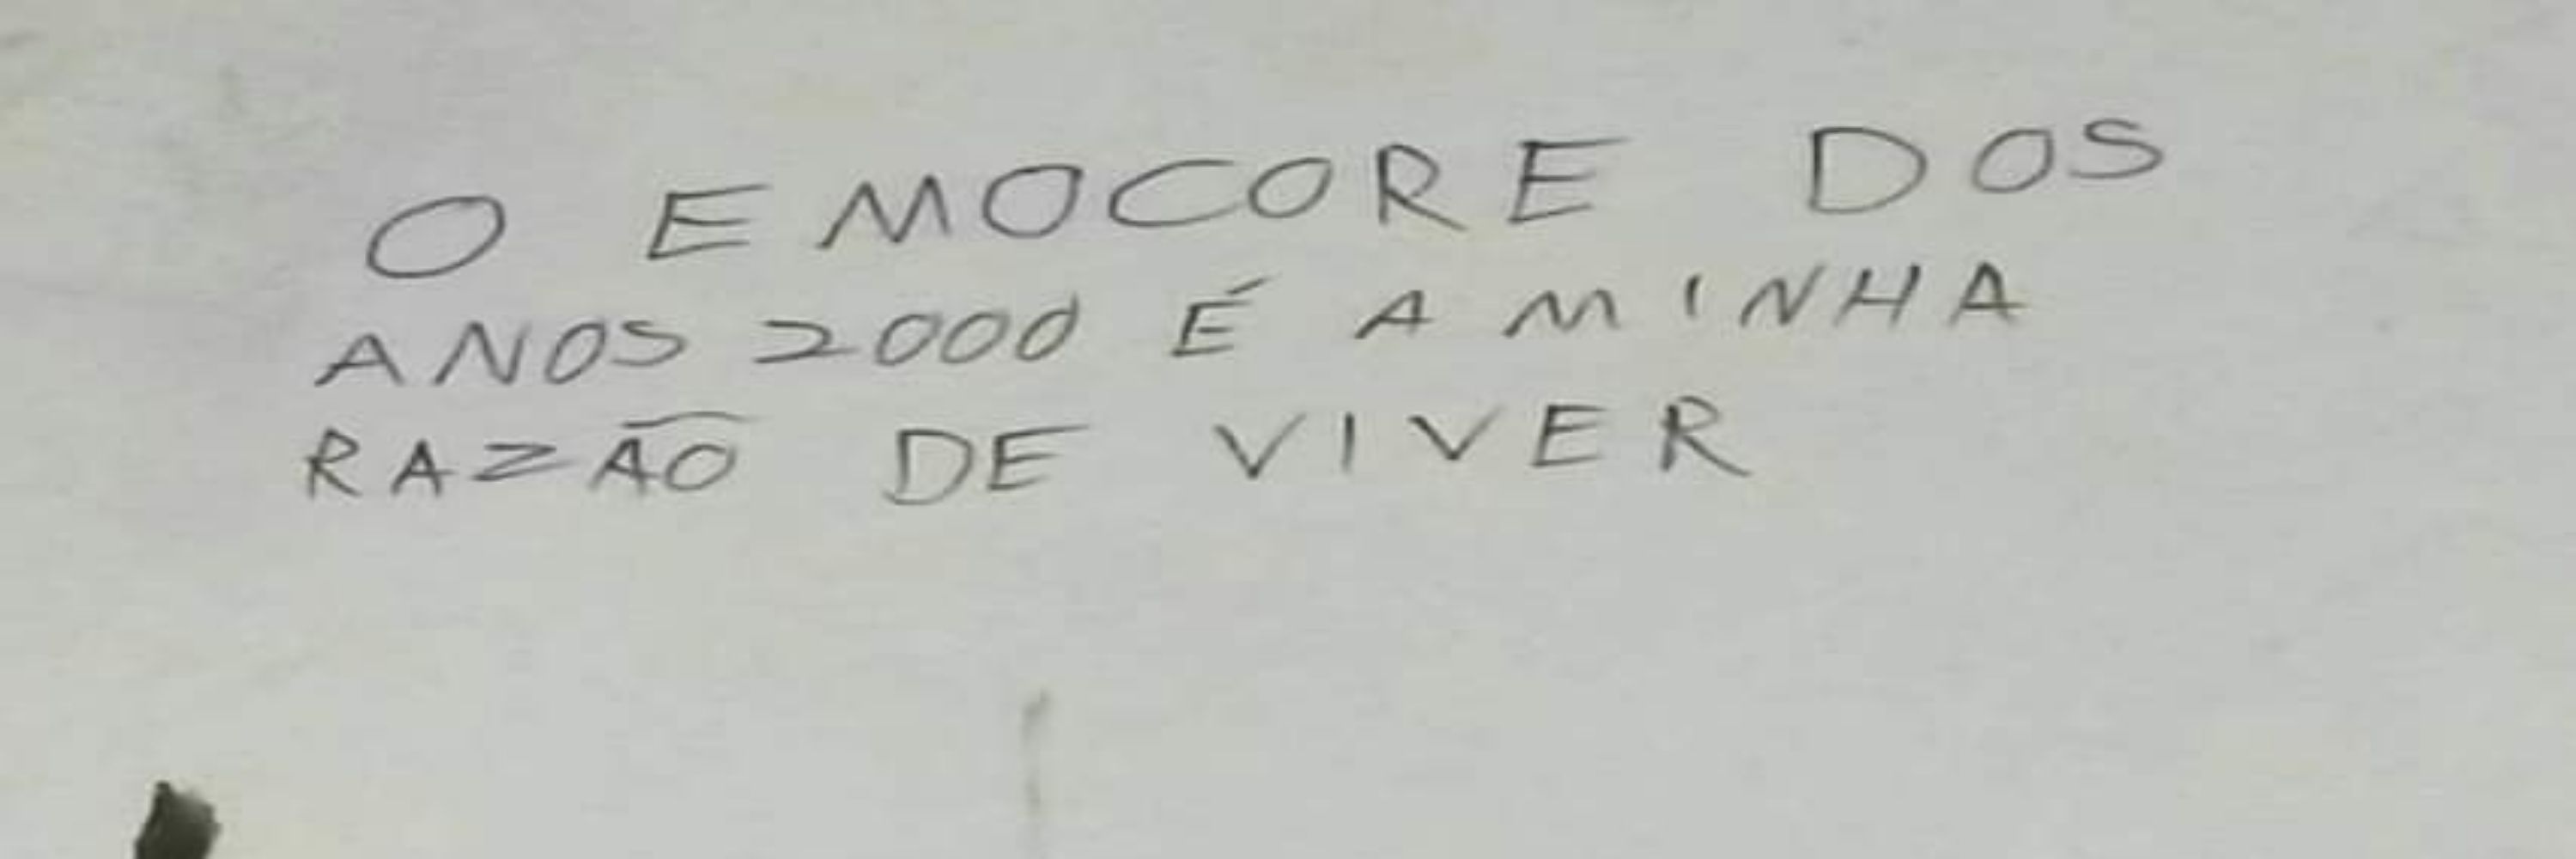 O EMOCORE DOS
ANOS 2000 É A MINHA
RAZÃO DE VIVER